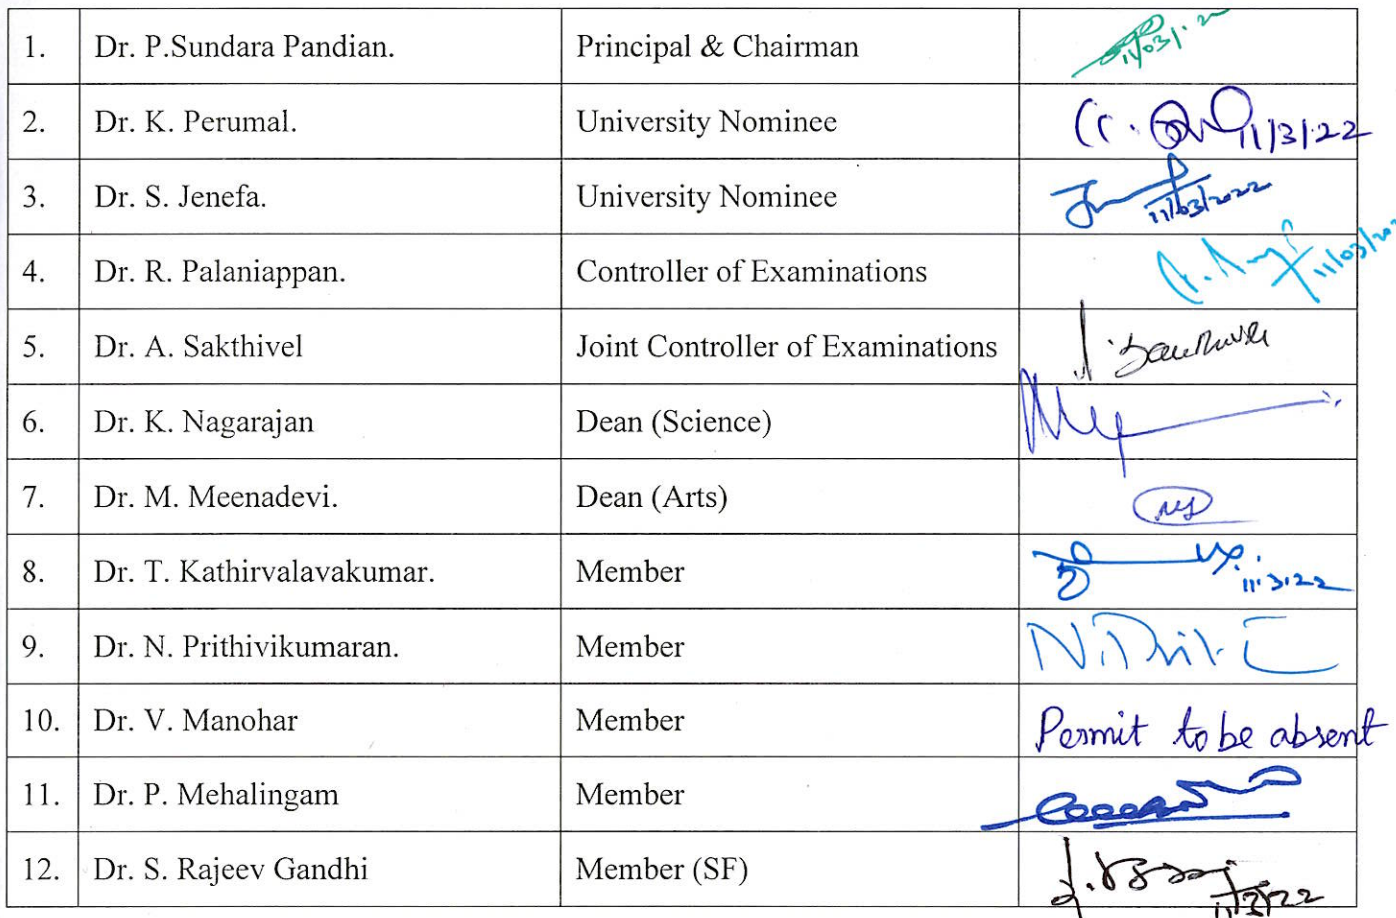 1. Dr. P.Sundara Pandian. Principal & Chairman 11/03/
2. Dr. K. Perumal. University Nominee 11/3/22
3. Dr. S. Jenefa. University Nominee 11/03/2022
4. Dr. R. Palaniappan. Controller of Examinations 11/03/20
5. Dr. A. Sakthivel Joint Controller of Examinations
6. Dr. K. Nagarajan Dean (Science)
7. Dr. M. Meenadevi. Dean (Arts)
8. Dr. T. Kathirvalavakumar. Member 11.3.22
9. Dr. N. Prithivikumaran. Member
10. Dr. V. Manohar Member Permit to be absent
11. Dr. P. Mehalingam Member
12. Dr. S. Rajeev Gandhi Member (SF) 11/3/22